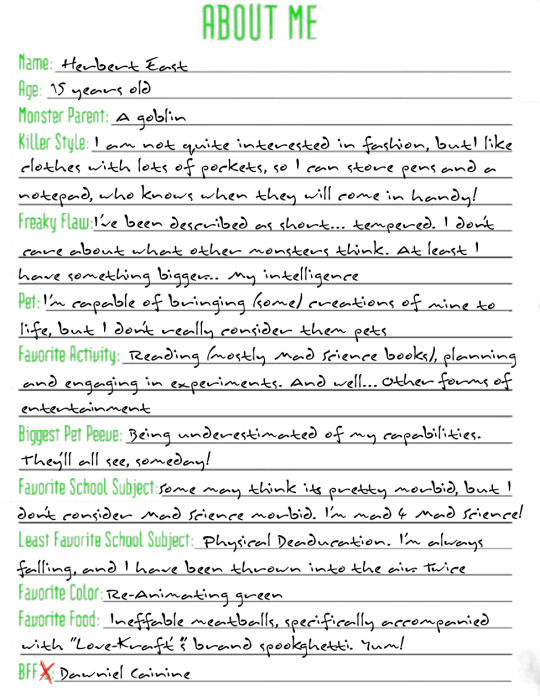 ABOUT ME
Name: Herbert East
Age: 15 years old
Monster Parent: A goblin
Killer Style: I am not quite interested in fashion, but I like
clothes with lots of pockets, so I can store pens and a
notepad, who knows when they will come in handy!
Freaky Flaw: I've been described as short... tempered. I don't
care about what other monsters think. At least I
have something bigger... My intelligence
Pet: I'm capable of bringing (some) creations of mine to
life, but I don't really consider them pets
Favorite Activity: Reading (mostly Mad Science books), planning
and engaging in experiments. And well... Other forms of
entertainment
Biggest Pet Peeve: Being underestimated of my capabilities.
They'll all see, someday!
Favorite School Subject: Some may think its pretty morbid, but I
don't consider Mad Science morbid. I'm mad 4 Mad Science!
Least Favorite School Subject: Physical Deaducation. I'm always
falling, and I have been thrown into the air. Twice
Favorite Color: Re-Animating green
Favorite Food: Ineffable meatballs, specifically accompanied
with "Love-Kraft's" brand spookghetti. Yum!
BFF: Dawniel Cainine